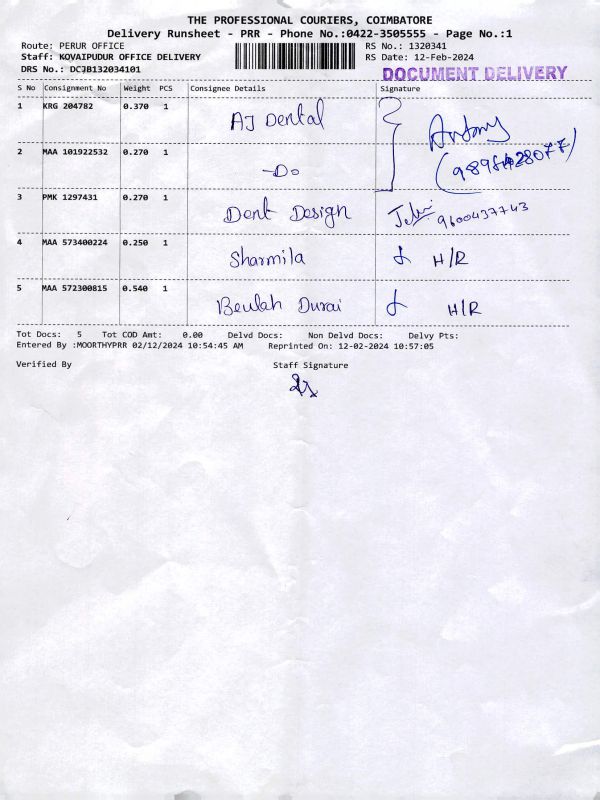 THE PROFESSIONAL COURIERS, COIMBATORE
Delivery Runsheet - PRR - Phone No.:0422-3505555 - Page No.:1
Route: PERUR OFFICE RS No.: 1320341
Staff: KOVAIPUDUR OFFICE DELIVERY RS Date: 12-Feb-2024
DRS No.: DCJB132034101 DOCUMENT DELIVERY
S No Consignment No Weight PCS Consignee Details Signature
1 KRG 204782 0.370 1 AJ Dental Antony
2 MAA 101922532 0.270 1 -Do
3 PMK 1297431 0.270 1 Dent Design 9600437743
4 MAA 573400224 0.250 1 Sharmila H/R
5 MAA 572300815 0.540 1 Beulah Durai H/R
Tot Docs: 5 Tot COD Amt: 0.00 Delvd Docs: Non Delvd Docs: Delvy Pts:
Entered By :MOORTHYPRR 02/12/2024 10:54:45 AM Reprinted On: 12-02-2024 10:57:05
Verified By Staff Signature